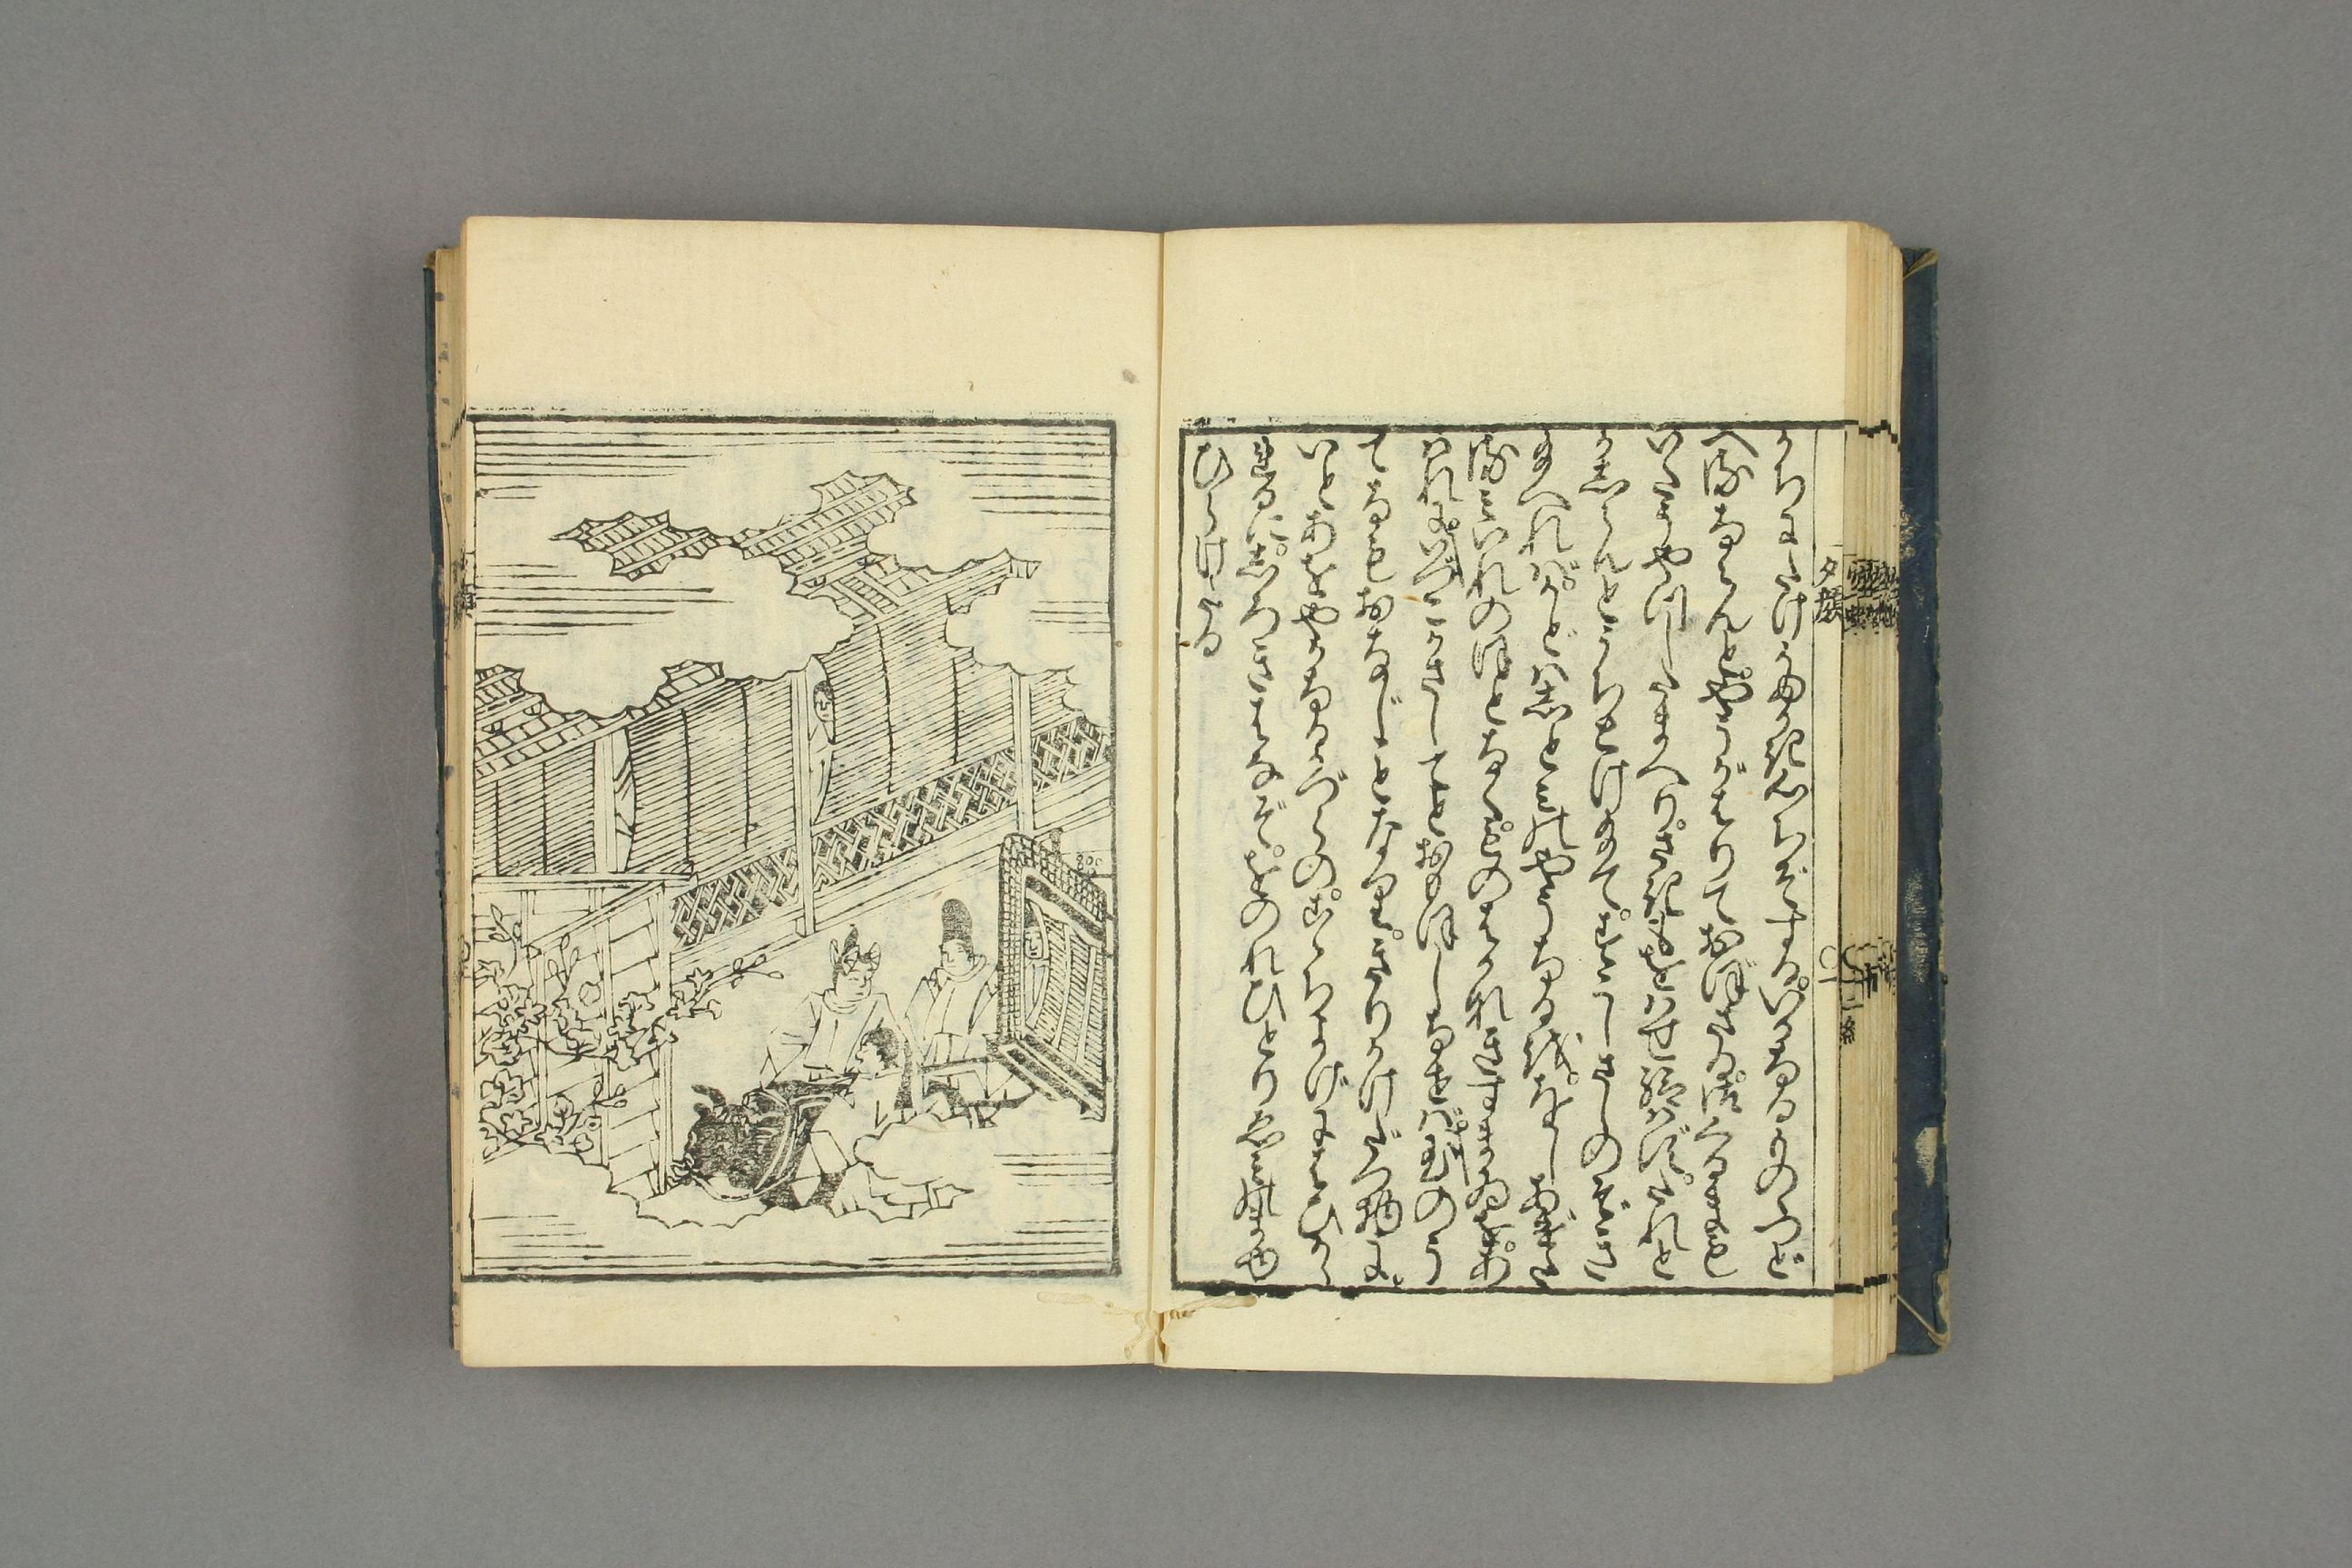 夕顔
がちにたけたかき心ちぞする。いかなるものゝつど
へるならんと。やうがはりておぼさる。御くるまも
いたうやつしたまへり。さきもをはせ給はず。たれと
かしらんとうちとけ給て。すこしさしのぞき
給へれば。かどはしとみのやうなるを。をしあげた
る。みいれのほどなく。ものはかなきすまゐを。あ
はれに。いづこかさしてとおもほしなせば。玉のう
てなもおなじことなり。きりかけだつ物に。
いとあをやかなるかづらの。心ちよげにはひかゝ
れるに。しろきはなぞ。をのれひとりゑみのまゆ
ひらけたる